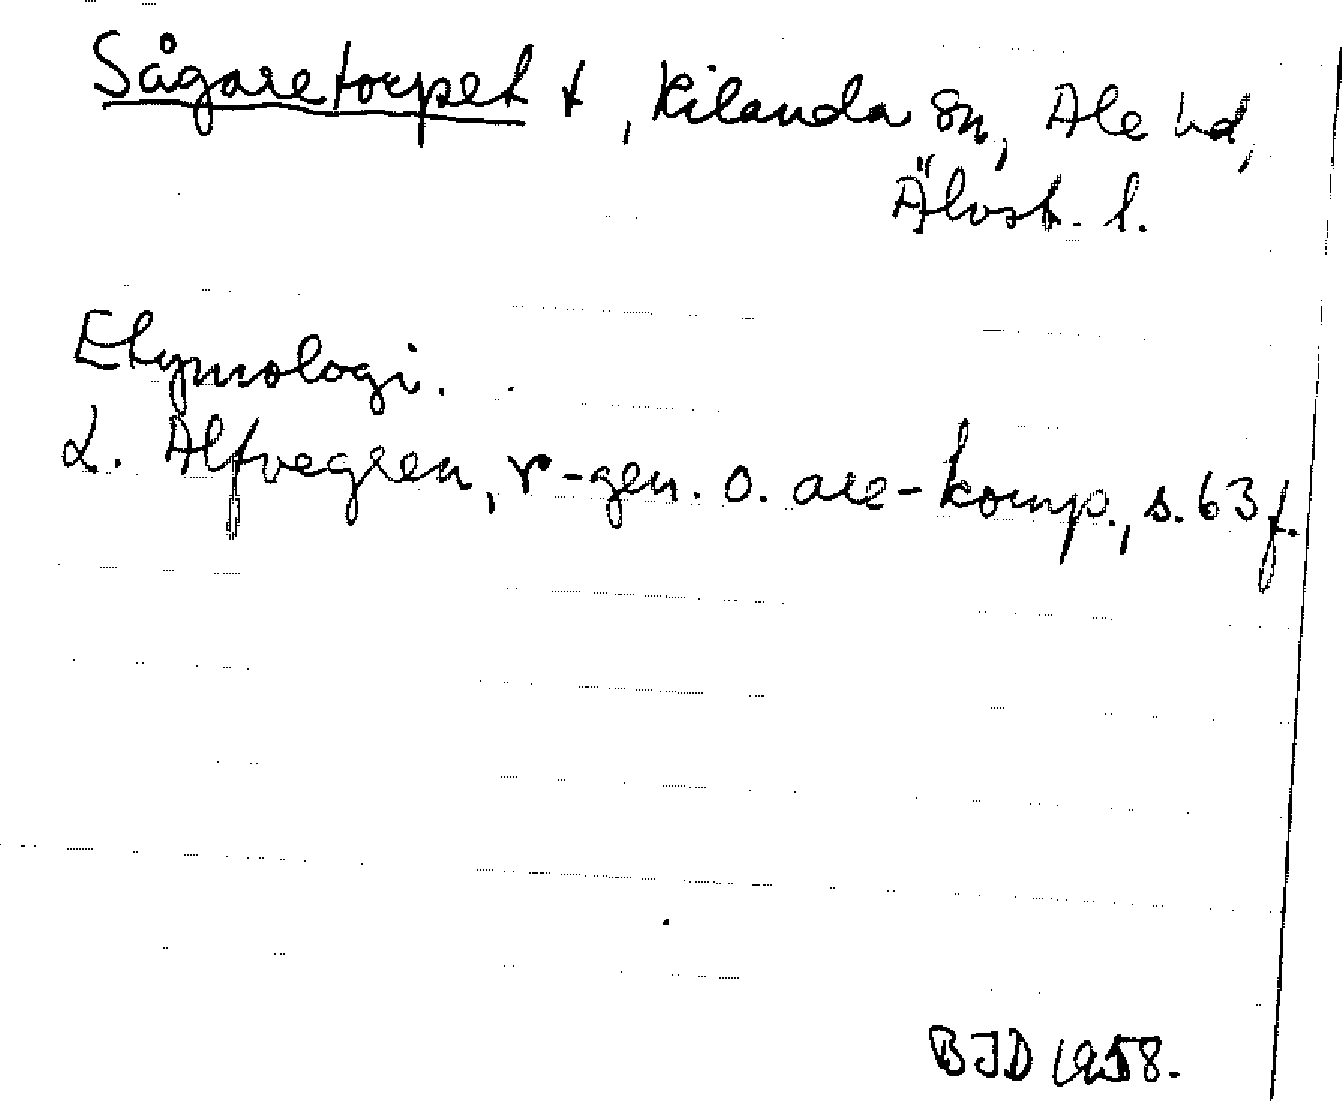 Sågaretorpet t, Kilanda sn, Ale hd,
Älvsb. l.
Etymologi.
L. Alfvegren, r-gen. o. are-komp., s. 63 f.
BJD 1958.